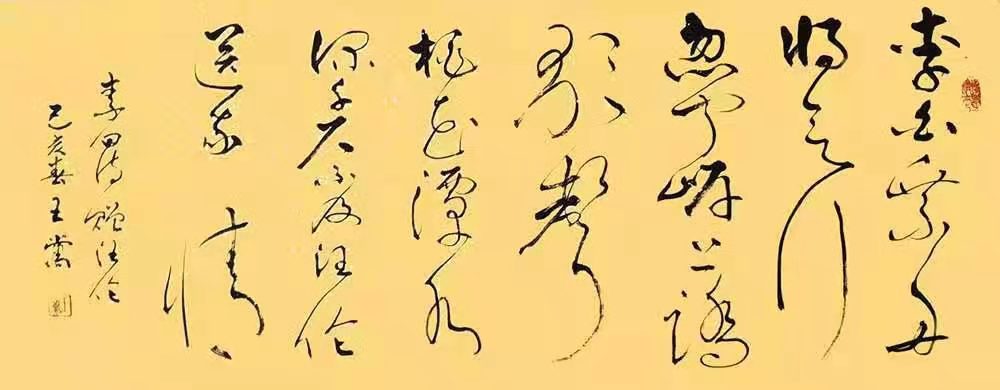 李白乘舟
將欲行
忽聞岸上踏
歌聲
桃花潭水
深千尺不及汪倫
送我情
李白詩贈汪倫
己亥春王